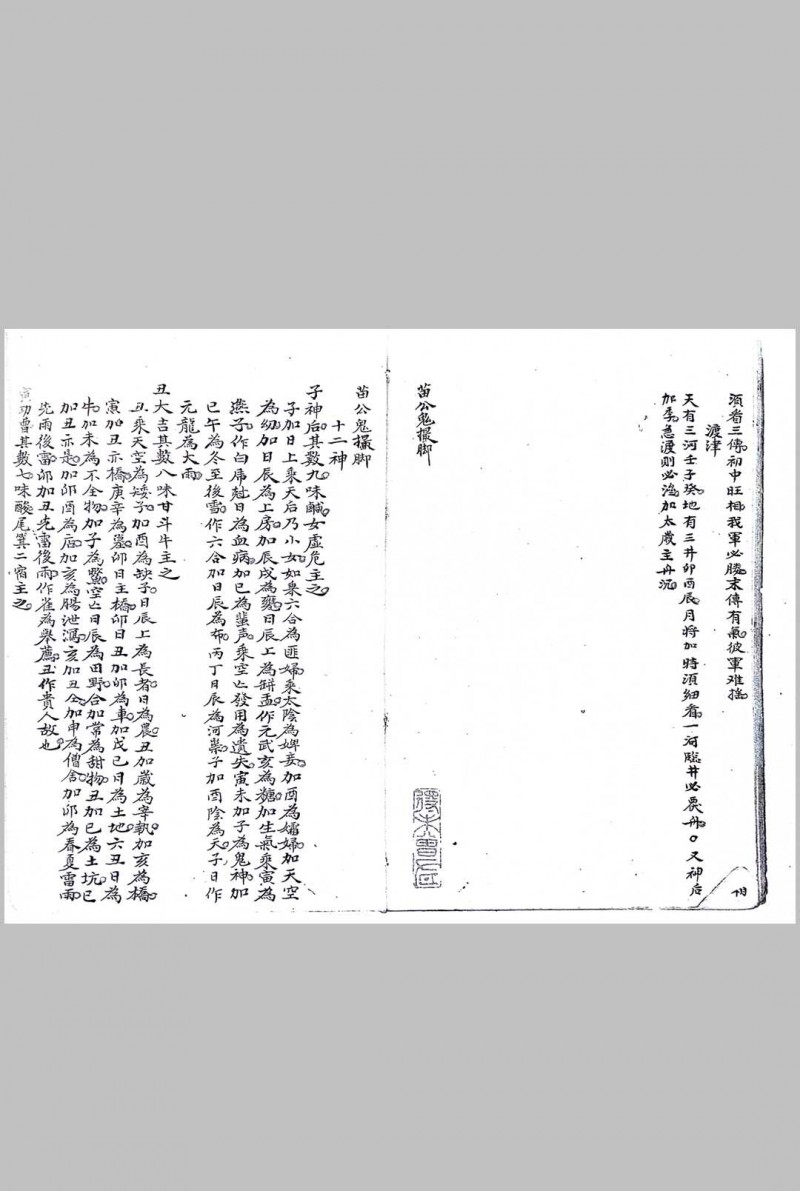 須看三傳初中旺相我軍必勝末傳有氣彼軍难搖
渡津
天有三河壬子癸地有三井卯酉辰月將加時須細看一河臨井必覆舟○又神后
加季急渡則必淹加太歲主舟沉
苗公鬼撮脚
苗公鬼撮脚
十二神
子神后其數九味鹹女虛危主之
子加日上乘天后乃小女如梟六合為匪婦乘太陰為婢妾加酉為孀婦加天空
為幼加日辰為上房加辰戌為甕日辰上為缾盂作元武亥為糖加生氣乘寅為
燕子作白虎尅日為血病加巳為蜚声乘空亡發用為遺失寅未加子為鬼神加
巳午為冬至後雪作六合加日辰為布丙丁日辰為河祟子加酉陰為天子日作
元龍為大雨
丑大吉其數八味甘斗牛主之
丑乘天空為矮子加酉為缺子日辰上為長者日為農丑加歲為宰執加亥為橋
寅加丑亦橋庚辛為墓卯日主橋卯日丑加卯為車加戊己日為土地六丑日為
牛加未為不全物加子為鱉空亡日辰為田野合加常為甜物丑加巳為土坑巳
加丑亦是加卯酉為店加亥為腸泄瀉亥加丑仝加申為僧舍加卯為春夏雷雨
先雨後雷卯加丑先雷後雨作雀為舉薦丑作貴人故也
寅功曹其數七味酸尾箕二宿主之